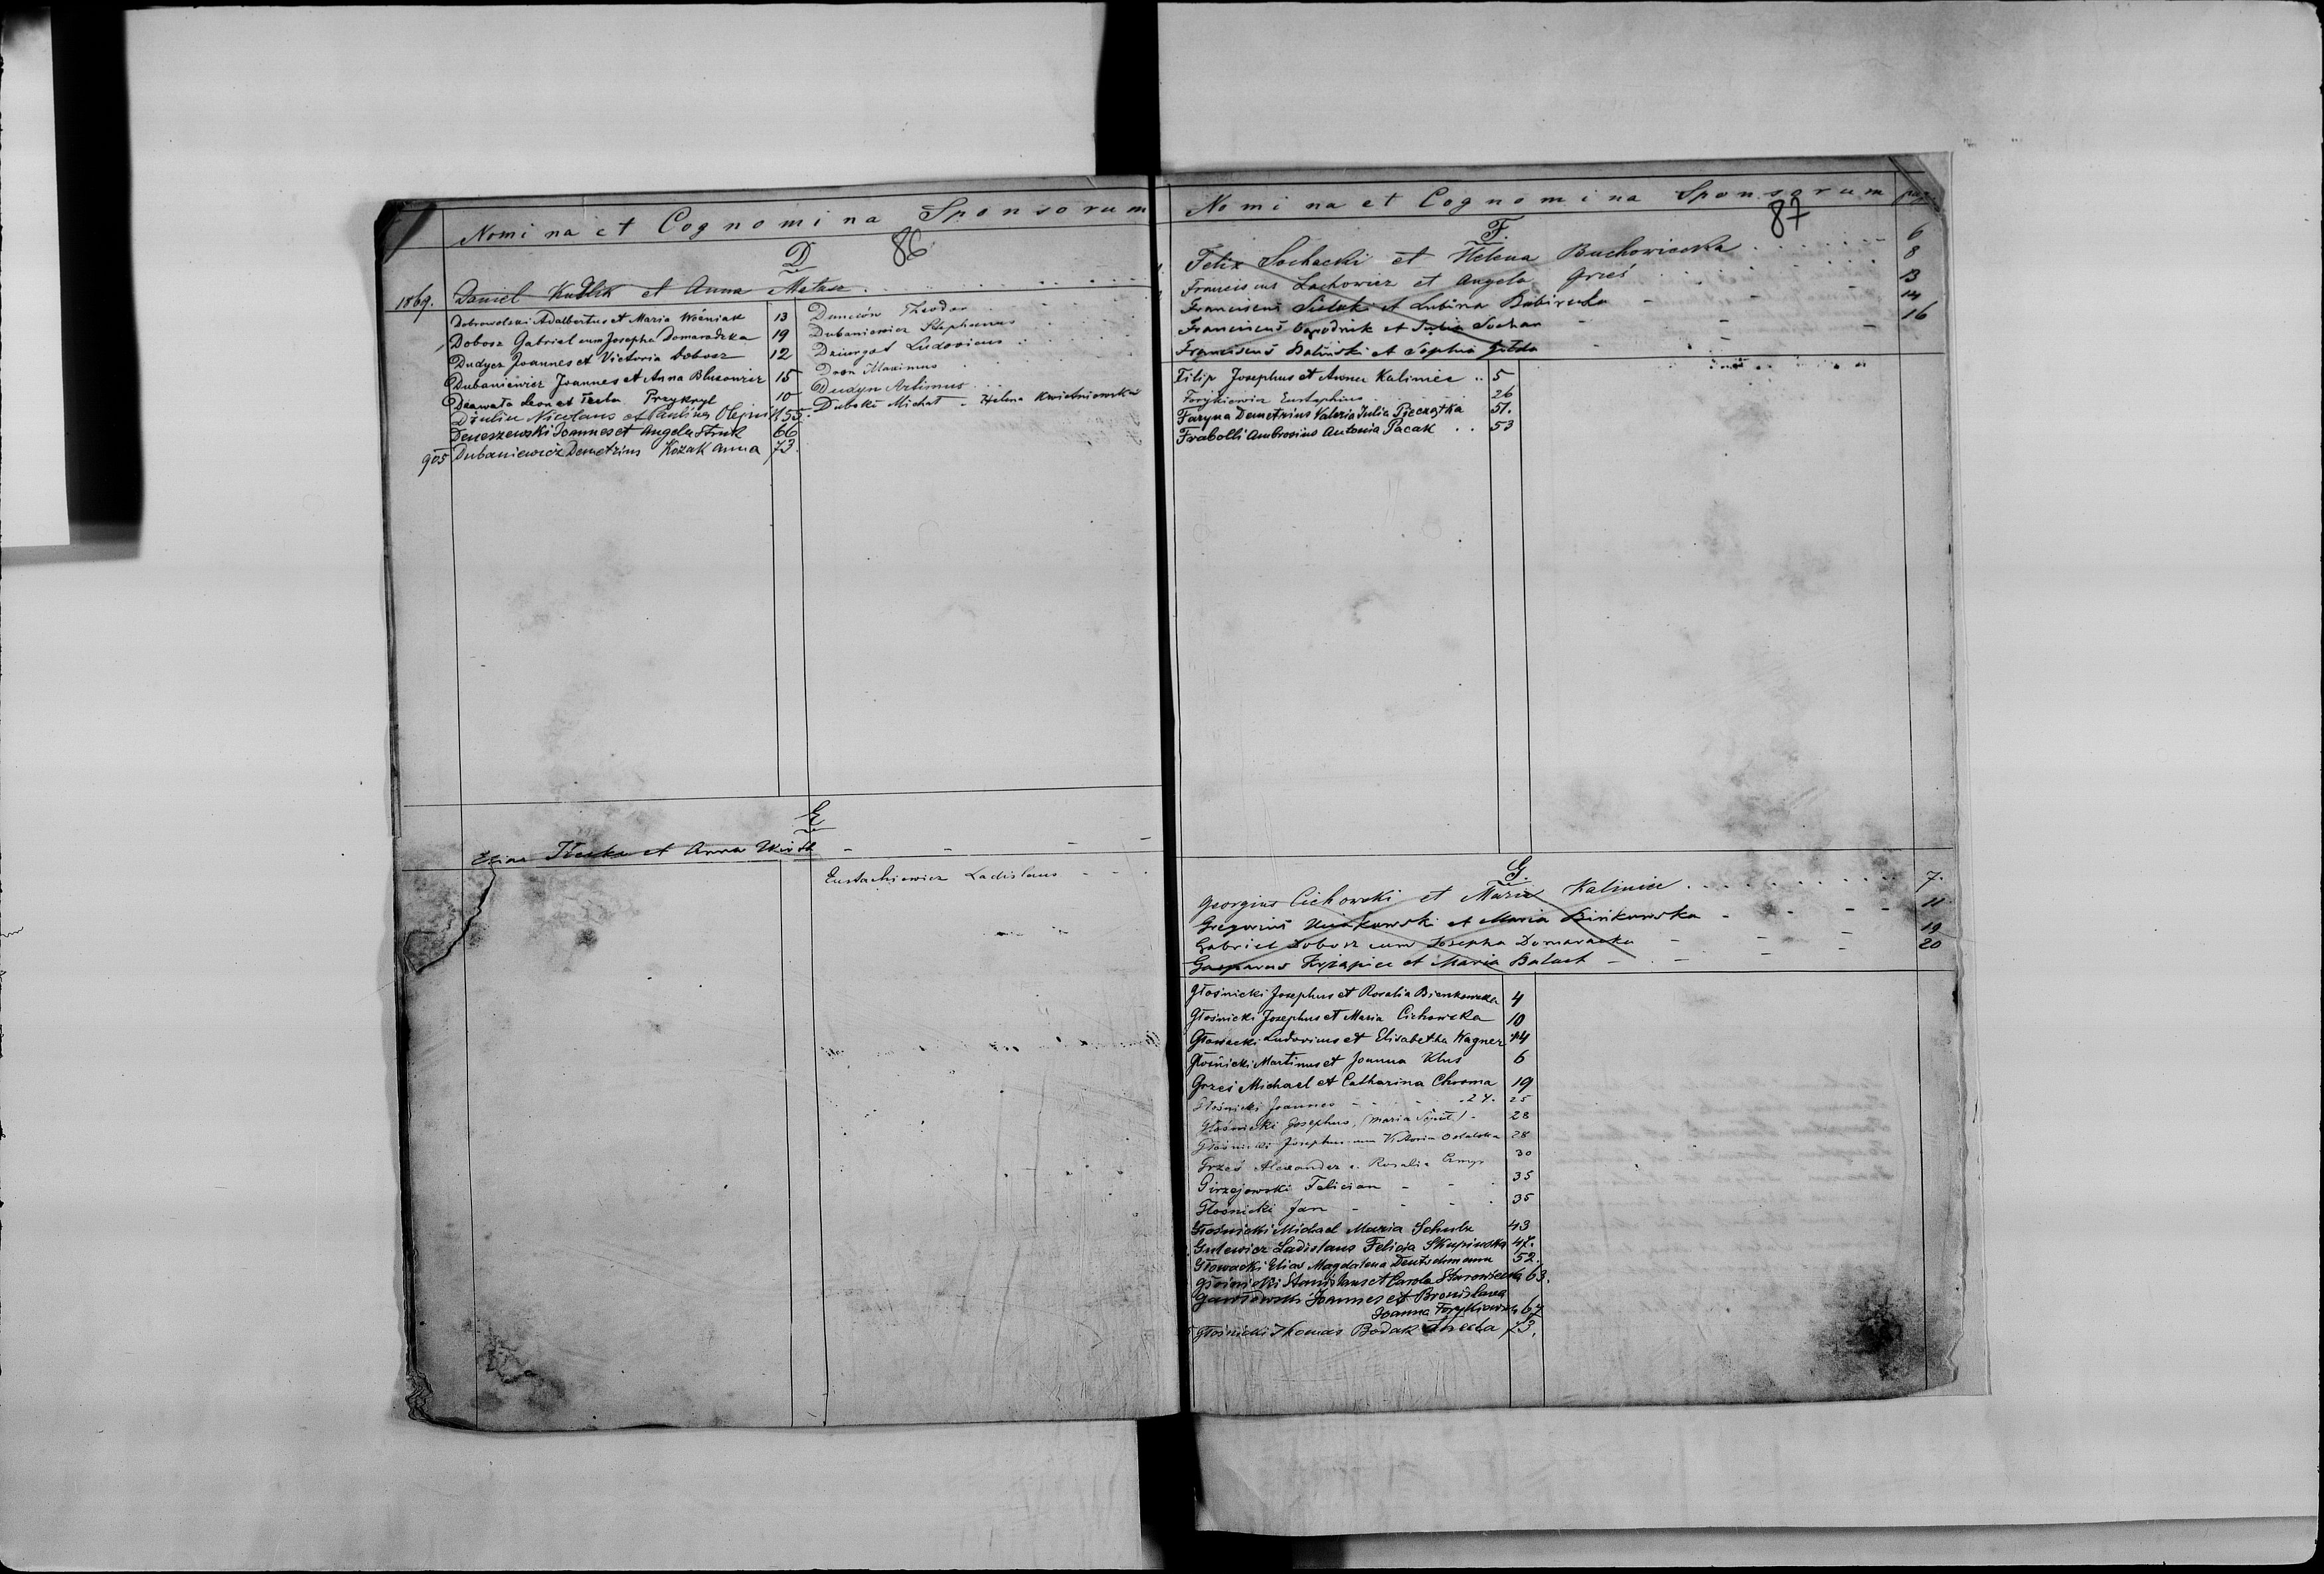 Nomina et Cognomina Sponsorum
86
D
1869. Daniel Kudlik et Anna Matusz
Dobrowolski Adalbertus et Maria Woźniak 13
Dobosz Gabriel cum Josepha Domaradzka 19
Dudycz Joannes et Victoria Dobosz 12
Dubaniewicz Joannes et Anna Blusowicz 15
Leon et Tecla Przykryl 10
Nicolaus et Paulina Olejnik 55.
Deneszewski Joannes et Angela Struk 66
905 Dubaniewicz Demetrius Kozak Anna 73.
Theodor
Dubaniewicz Stephanus
Ludovicus
Maximus
Dudyn Artimus
Dubski Michał - Helena Kwiatniowska
E
et Anna
Eustachiewicz Ladislaus
Nomina et Cognomina Sponsorum pag.
87
F.
Felix Sochacki et Helena Buchowiecka 6
Franciscus Lachowicz et Angela Grześ 8
Franciscus et 13
Franciscus Ogrodnik et Julia Sochan 14
Franciscus Baliński et Sophia 16
Filip Josephus et Anna Kaliniec 5
Forykiewicz Eustephius 26
Faryna Demetrius Valeria Julia Pieczątka 51.
Frabolli Ambrosius Antonia Pacak 53
G.
Georgius Cichowski et Maria Kaliniec 7.
Gregorius et Maria Binkowska 11
Gabriel Dobosz cum Josepha Domaracka 19
Gasparus Krząpiec et Maria Balach 20
Głośnicki Josephus et Rosalia Bienkowska 4
Głośnicki Josephus et Maria Cichowska 10
Głowacki Ludovicus et Elisabetha Wagner 44
Głośnicki Martinus et Joanna Klus 6
Grześ Michael et Catharina Chroma 19
Głośnicki Joannes - 24. 25
Głośnicki Josephus, (Maria) - 28
Głośnicki Josephus cum Victoria 28
Grześ Alexander c. Rosalia 30
Girzejowski Felician - 35
Głośnicki Jan - 35
Głośnicki Michael Maria Schulz 43
Gulewicz Ladislaus Felicia Skupińska 47.
Głowacki Elias Magdalena Deutschmann 52.
Głośnicki Stanislaus et Carola 63.
Joannes et Bronislava
Joanna Forykiewicz 67
Głośnicki Thomas Bodak Aniela 73.